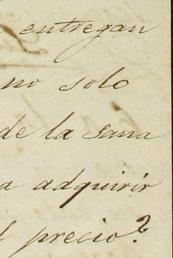 entregan
no solo
de la suma
a adquirir
l precio?